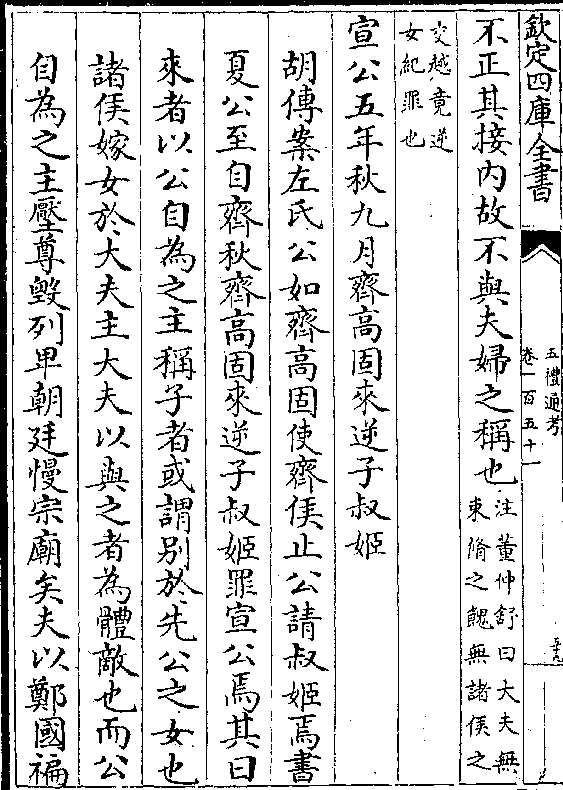 欽定四庫全書
五禮通考
卷一百五十一
五十九
不正其接內故不與夫婦之稱也注董仲舒曰大夫無
束脩之餽無諸侯之
交越竟逆
女紀罪也
宣公五年秋九月齊高固來逆子叔姬
胡傳案左氏公如齊高固使齊侯止公請叔姬焉書
夏公至自齊秋齊高固來逆子叔姬罪宣公焉其曰
來者以公自為之主稱子者或謂别於先公之女也
諸侯嫁女於大夫主大夫以與之者為體敵也而公
自為之主壓尊毀列卑朝廷慢宗廟矣夫以鄭國褊